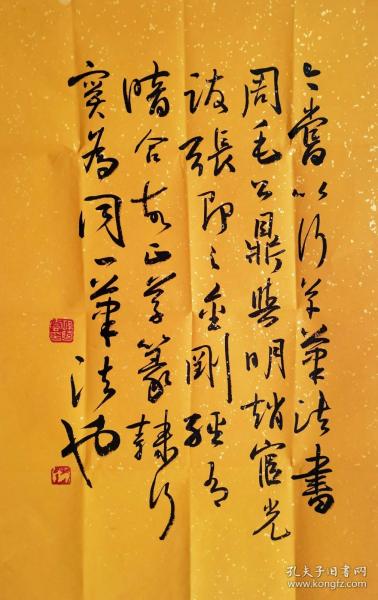 余嘗以行草筆法書
周毛公鼎與明趙宧光
跋張即之金剛經有
暗合正草篆隸行
實為同一筆法也
孔夫子旧书网
www.kongfz.com